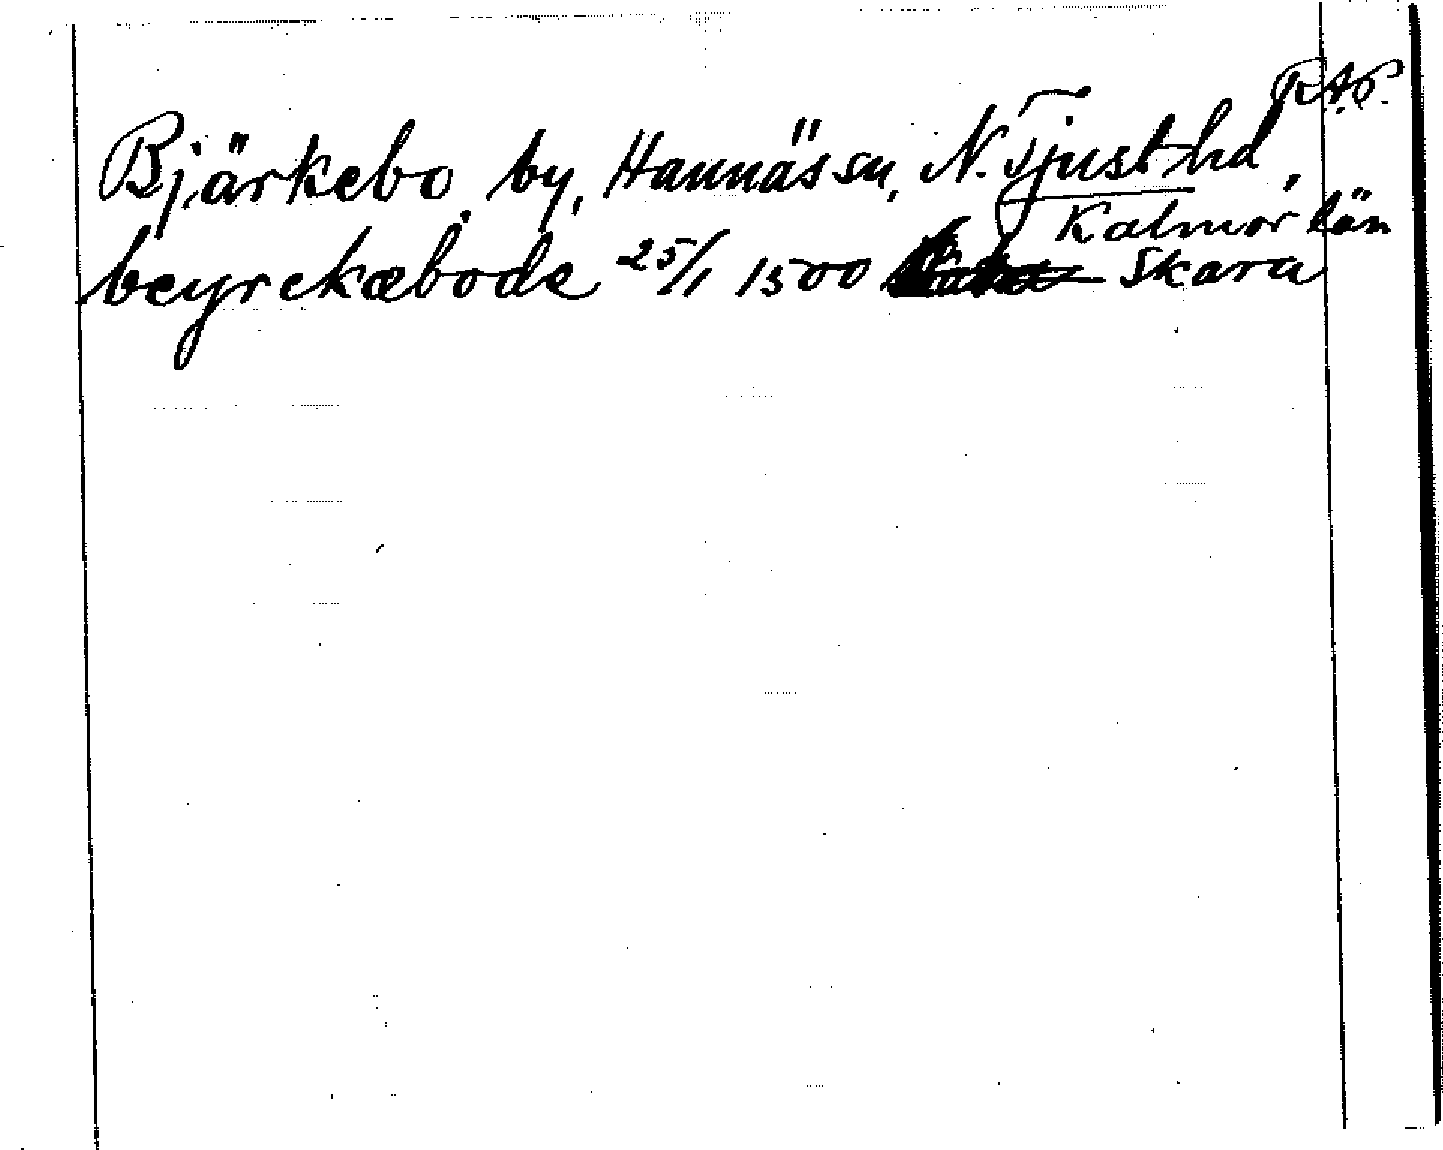 R.A.P.
Bjärkebo by, Hannäs sn, N. Tjust hd,
Kalmar län
beyrekæbode 25/1 1500 Skara